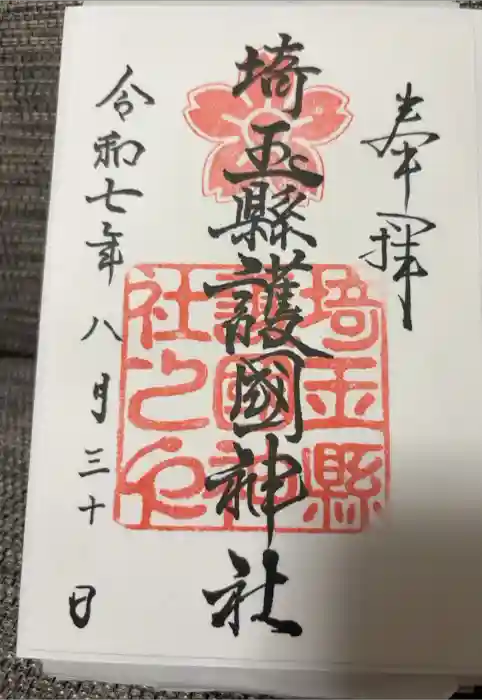 奉拝
埼玉縣護國神社
埼玉縣
護國神
社之印
令和七年八月三十日